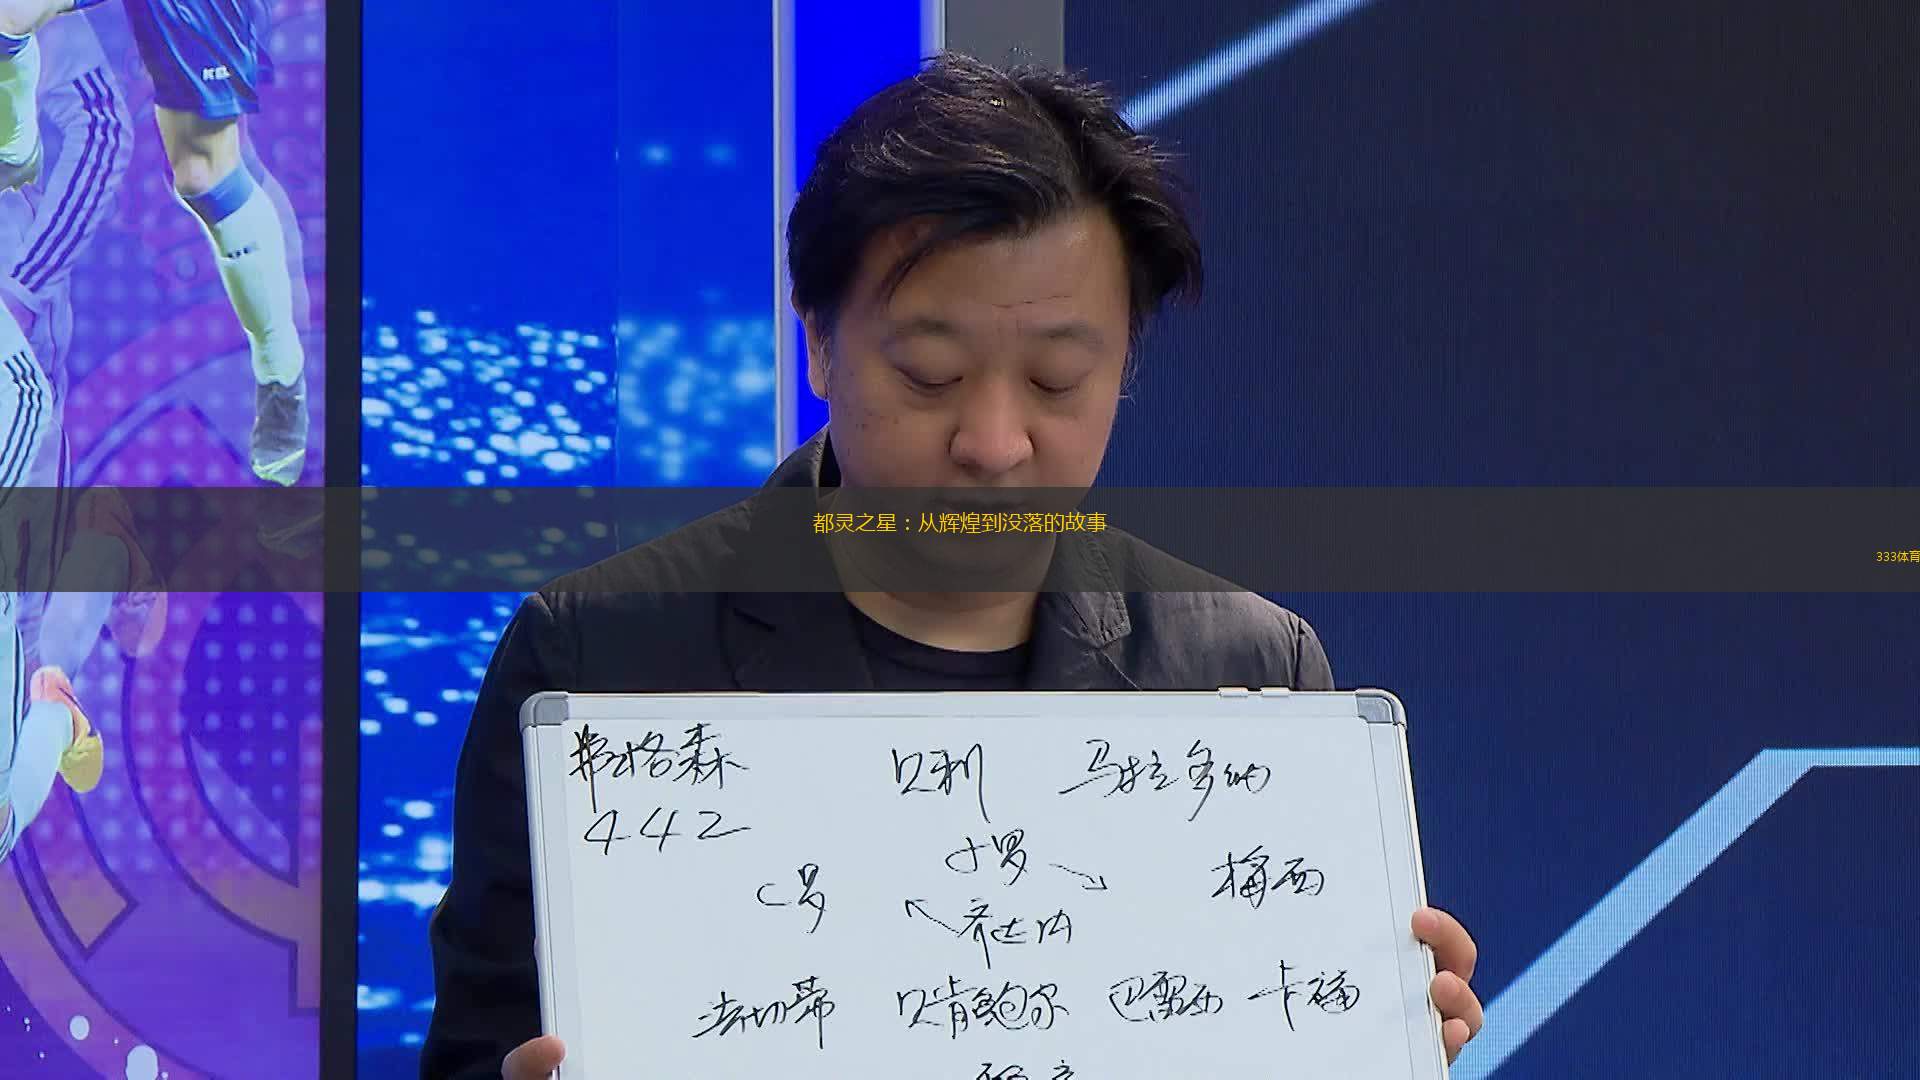 都灵之星：从辉煌到没落的故事
333体育
弗格森 贝利 马拉多纳
442
小罗
C罗 梅西
齐达内
法切蒂 贝肯鲍尔 巴雷西 卡福